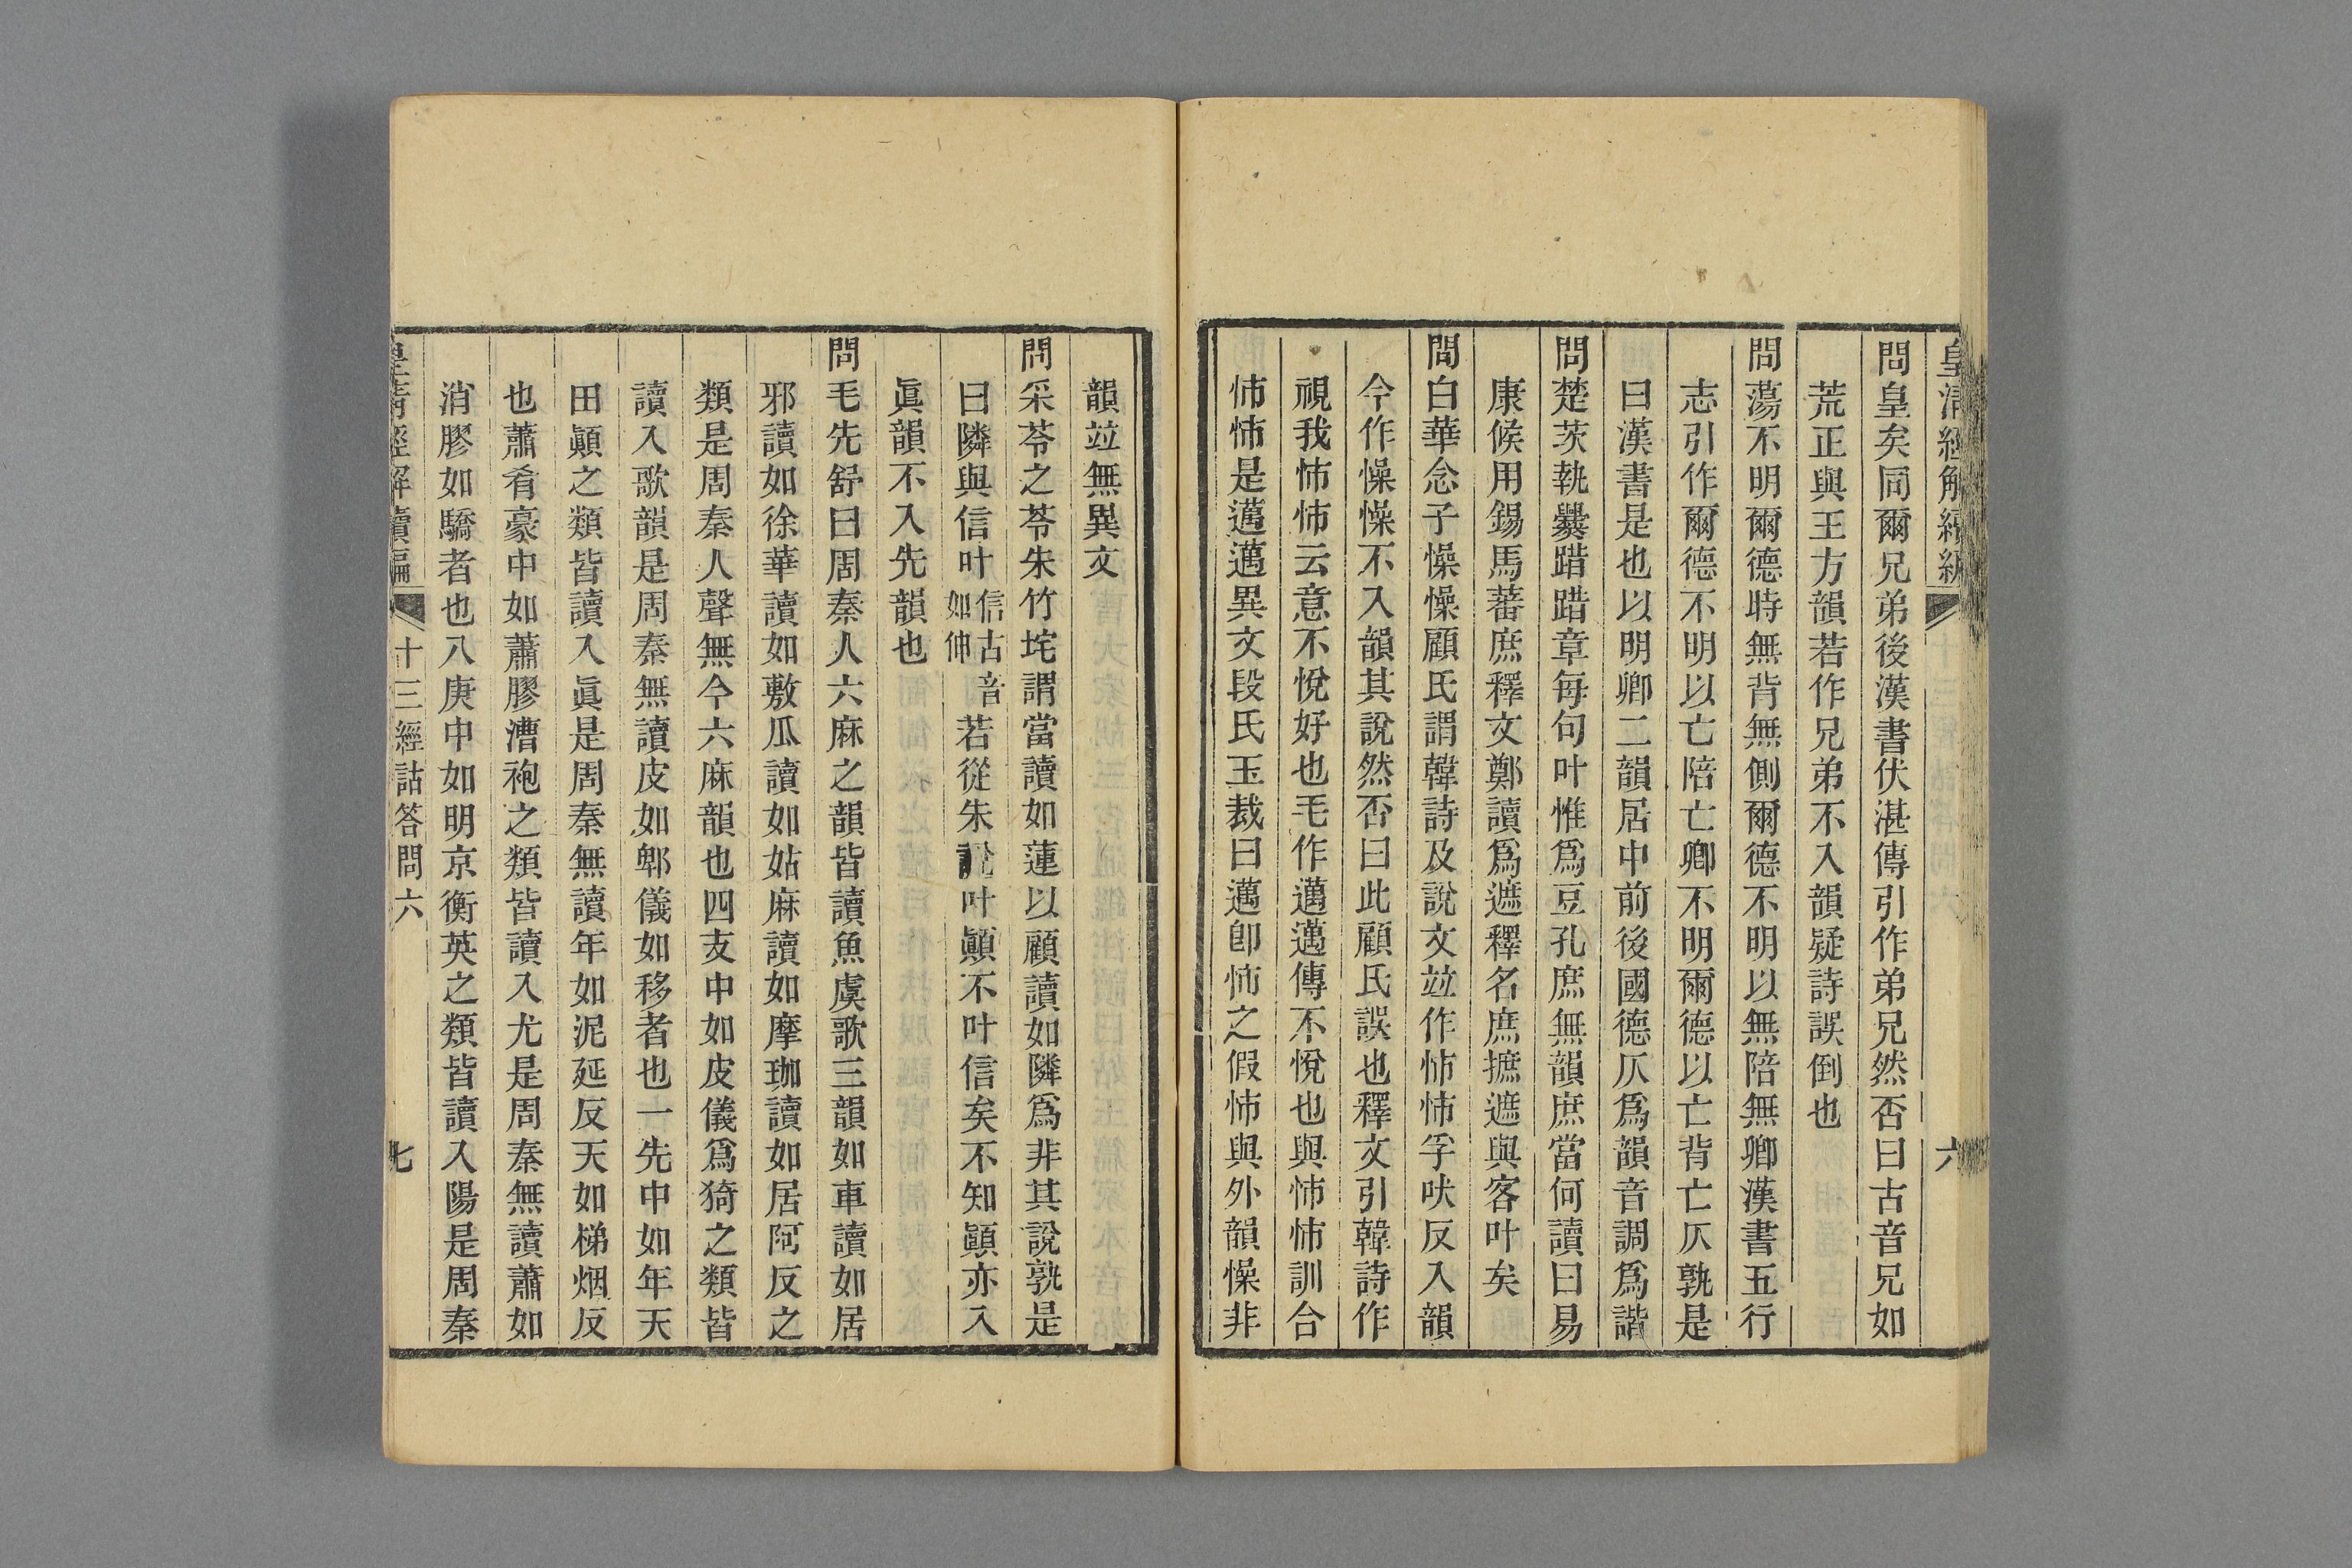 皇清經解續編
六
問皇矣同爾兄弟後漢書伏湛傳引作弟兄然否曰古音兄如
荒正與王方韻若作兄弟不入韻疑詩誤倒也
問蕩不明爾德時無背無側爾德不明以無陪無卿漢書五行
志引作爾德不明以亡陪亡卿不明爾德以亡背亡仄孰是
曰漢書是也以明卿二韻居中前後國德仄爲韻音調爲諧
問楚茨執爨踖踖章每句叶惟爲豆孔庶無韻庶當何讀曰易
康候用錫馬蕃庶釋文鄭讀爲遮釋名庶摭遮與客叶矣
問白華念子懆懆顧氏謂韓詩及說文竝作怖怖孚吠反入韻
今作懆懆不入韻其說然否曰此顧氏誤也釋文引韓詩作
視我怖怖云意不悅好也毛作邁邁傳不悅也與怖怖訓合
怖怖是邁邁異文段氏玉裁曰邁卽怖之假怖與外韻懆非
韻竝無異文
問采苓之苓朱竹垞謂當讀如蓮以顧讀如隣爲非其說孰是
曰隣與信叶信古音如伸若從朱說叶顚不叶信矣不知顚亦入
眞韻不入先韻也
問毛先舒曰周秦人六麻之韻皆讀魚虞歌三韻如車讀如居
邪讀如徐華讀如敷瓜讀如姑麻讀如摩珈讀如居阿反之
類是周秦人聲無今六麻韻也四支中如皮儀爲猗之類皆
讀入歌韻是周秦無讀皮如郫儀如移者也一先中如年天
田顚之類皆讀入眞是周秦無讀年如泥延反天如梯烟反
也蕭肴豪中如蕭膠漕袍之類皆讀入尤是周秦無讀蕭如
消膠如驕者也八庚中如明京衡英之類皆讀入陽是周秦
皇清經解續編
十三經詁答問六
七